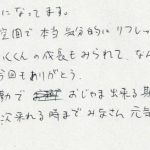 になってます。
空間で本当気分的にリフレッ
くくんの成長もみられて、なん
今回もありがとう。
動で おじゃま出来る
次来れる時までみなさん元気